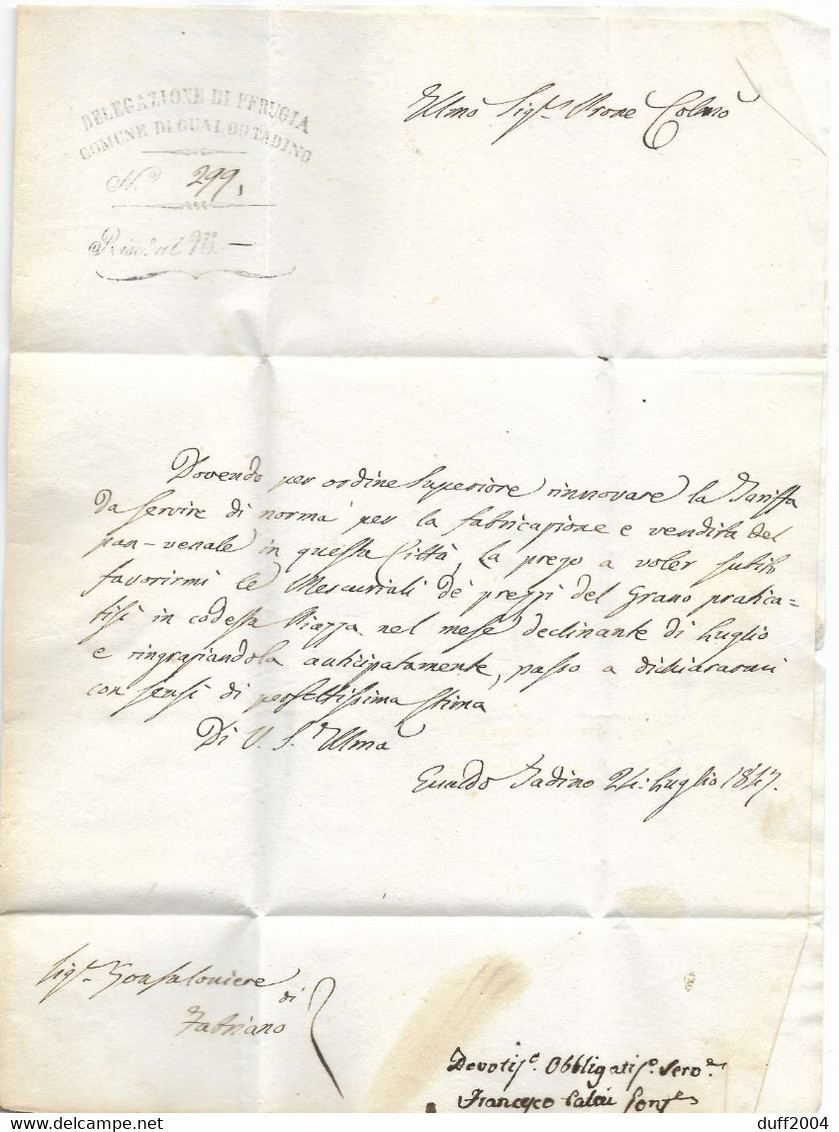 DELEGAZIONE DI PERUGIA
COMUNE DI GUALDO TADINO
N.º 299,
Risp. al N. —
Illmo Sigr. Prone Colmo
Dovendo per ordine Superiore rinnovare la Tariffa
da servire di norma per la fabricazione e vendita del
pan-venale in questa Città, La prego a voler subito
favorirmi le Mercuriali de' prezzi del Grano pratica=
tisi in codesta Piazza nel mese declinante di Luglio
e ringraziandola anticipatamente, passo a dichiararmi
con sensi di perfettissima stima
Di V. S. Illma
Gualdo Tadino 24: Luglio 1847.
Sigr. Gonfaloniere
di
Fabriano
Devotis. Obbligatis. Serve
Francesco Gonfe
duff2004